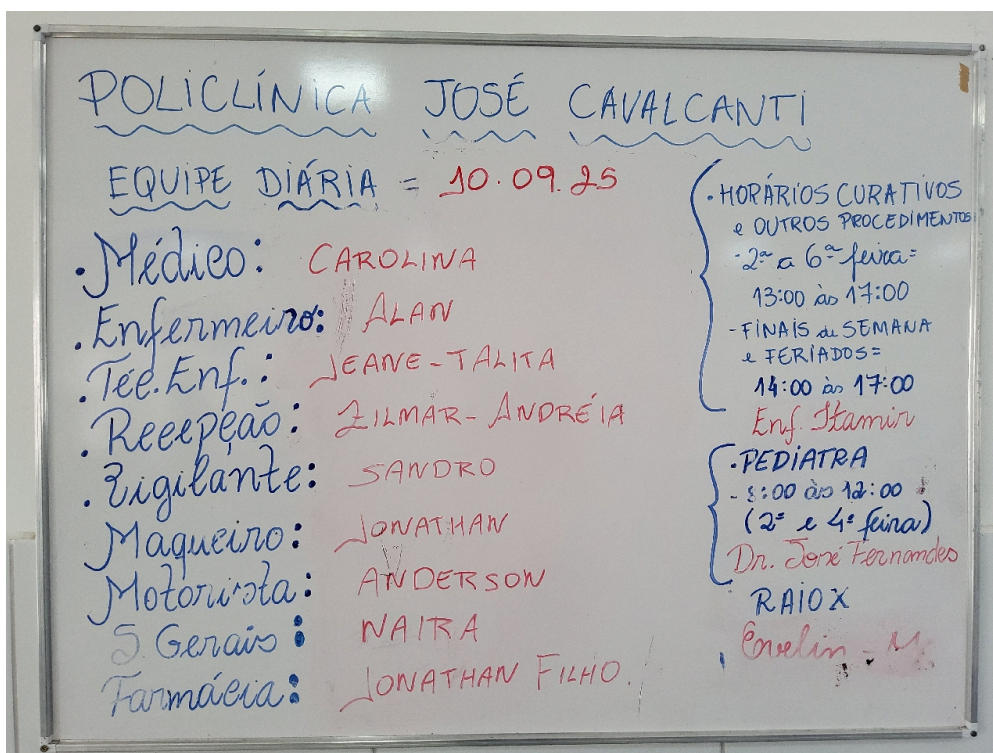 POLICLÍNICA JOSÉ CAVALCANTI
EQUIPE DIÁRIA = 10.09.25
. Médico: CAROLINA
. Enfermeiro: ALAN
. Téc. Enf.: JEANE - TALITA
. Recepção: ZILMAR - ANDRÉIA
. Vigilante: SANDRO
Maqueiro: JONATHAN
Motorista: ANDERSON
S. Gerais: NAIRA
Farmácia: JONATHAN FILHO.
. HORÁRIOS CURATIVOS
e OUTROS PROCEDIMENTOS
- 2ª a 6ª feira =
13:00 às 17:00
- FINAIS de SEMANA
e FERIADOS =
14:00 às 17:00
Enf. Itamir
. PEDIATRA
- 8:00 às 12:00
(2ª e 4ª feira)
Dr. José Fernandes
RAIO X
Evelin - M